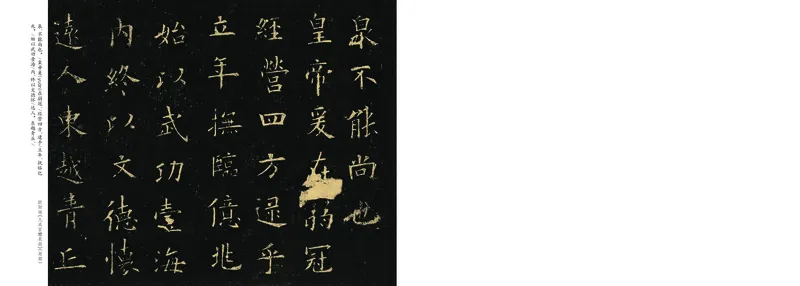 泉不能尚也
皇帝爰在弱冠
經營四方逮乎
立年撫臨億兆
始以武功壹海
內終以文德懷
遠人東越青丘